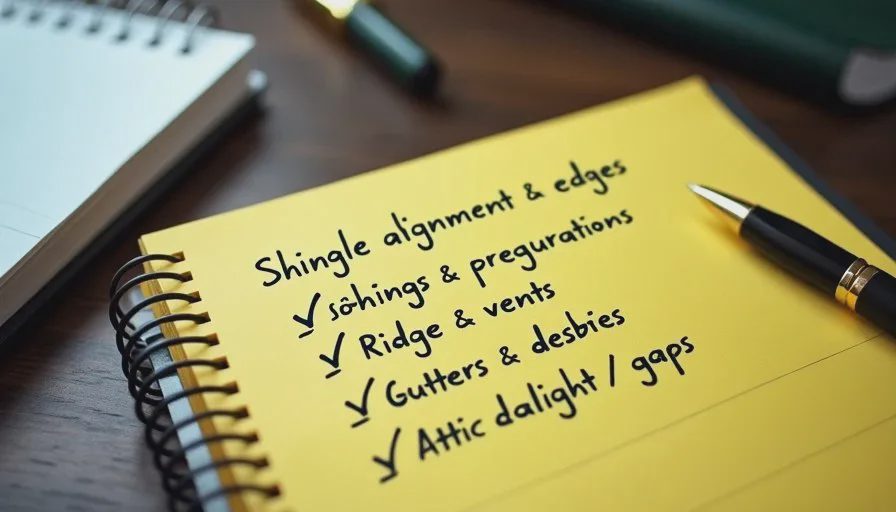 Shingle alignment & edges
✓ sôhings & pregurations
✓ Ridge & vents
✓ Gutters & desbies
✓ Attic dalight / gaps